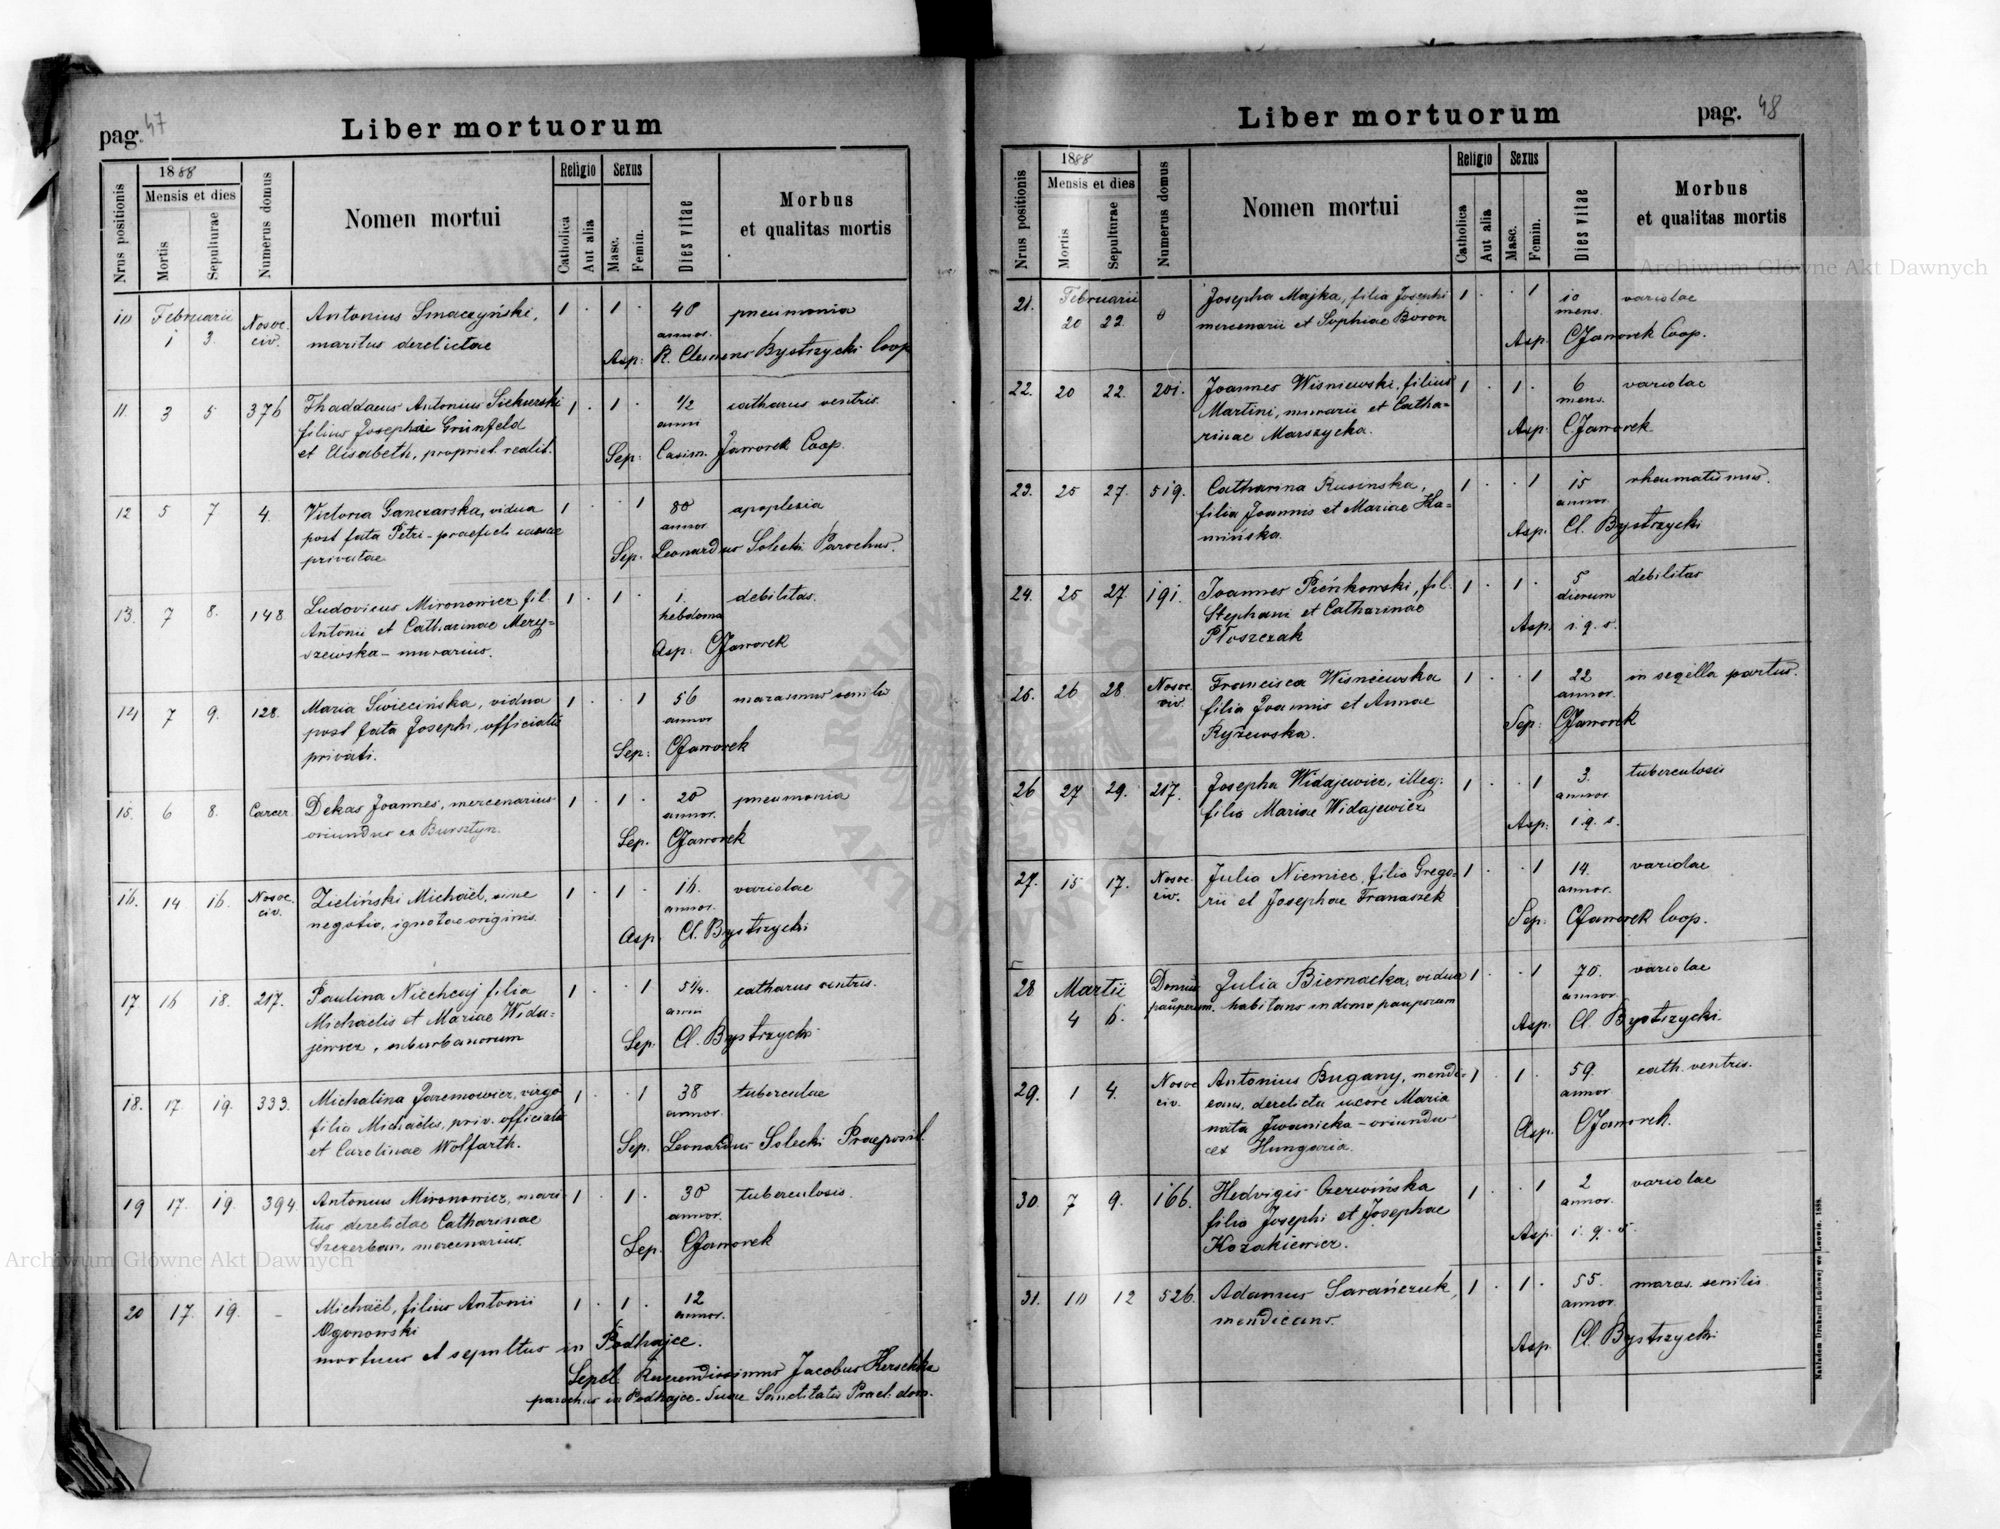 pag. 47
Liber mortuorum
Nrus positionis
1888
Mensis et dies
Mortis
Sepulturae
Numerus domus
Nomen mortui
Religio
Catholica
Aut alia
Sexus
Masc.
Femin.
Dies vitae
Morbus
et qualitas mortis
10 Februarii Nosoc. Antonius Smaczyński, 1 . 1 . 40 pneumonia
1 3. civ. maritus derelictae annor.
Asp: R. Clemens Bystrzycki Coop
11 3 5 376 Thaddaeus Antonius Siekierski 1 . 1 . 1/2 catharus ventris.
filius Josephae Grünfeld anni
et Elisabeth, propriet. realit. Sep: Casim. Jaworek Coop.
12 5 7 4. Victoria Ganczarska, vidua 1 . 1 80 apoplexia
post fata Petri - praefecti cassae annor
privatae Sep: Leonardus Solecki Parochus.
13. 7 8. 148 Ludovicus Mironowicz fil. 1 . 1 . 1. debilitas.
Antonii et Catharinae Mery= hebdoma
szewska - murarius. Asp: CJaworek
14 7 9. 128. Maria Swiecińska, vidua 1 . . 1 56 marasmus senilis
post fata Josephi, officialis annor
privati. Sep: CJaworek
15. 6 8. Carcer. Dekas Joannes, mercenarius 1 . 1 . 20 pneumonia
oriundus ex Bursztyn. annor.
Sep. CJaworek
16. 14 16. Nosoc. Zieliński Michaël, sine 1 . 1 . 16. variolae
civ. negotio, ignotae originis. annor.
Asp. Cl. Bystrzycki
17 16 18. 217. Paulina Niechcaj filia 1 . . 1 5 1/4. catharus ventris.
Michaelis et Mariae Wida= anni
jewicz, suburbanorum Sep. Cl. Bystrzycki
18. 17. 19. 333. Michalina Jaremowicz, virgo 1 . . 1 38 tuberculae
filia Michaëlis, priv. officialis annor.
et Carolinae Wolfarth. Sep. Leonardus Solecki Praeposit.
19 17. 19. 394. Antonius Mironowicz, mari= 1 . 1 . 30 tuberculosis.
tus derelictae Catharinae annor.
Szczerban, mercenarius. Sep. CJaworek
20 17. 19. - Michaël, filius Antonii 1 . 1 . 12
Ogonowski annor.
mortuus et sepultus in Podhajce.
Sepel. Reverendissimus Jacobus Herschka
parochus in Podhajce - Suae Sanctitatis Prael. dom.
pag. 48
Liber mortuorum
Nrus positionis
1888
Mensis et dies
Mortis
Sepulturae
Numerus domus
Nomen mortui
Religio
Catholica
Aut alia
Sexus
Masc.
Femin.
Dies vitae
Morbus
et qualitas mortis
21. Februarii Josepha Majka, filia Josephi 1 . . 1 10 variolae
20 22. 0 mercenarii et Sophiae Boron mens.
Asp: CJaworek Coop.
22. 20 22. 201. Joannes Wisniewski, filius 1 . 1 . 6 variolae
Martini, murarii et Catha= mens.
rinae Marszycka. Asp: CJaworek
23. 25 27. 519. Catharina Rusinska, 1 . . 1 15 rheumatismus.
filia Joannis et Mariae Ka= annor.
mińska. Asp: Cl. Bystrzycki
24. 25 27 191. Joannes Pieńkowski, fil. 1 . 1 . 5 debilitas
Stephani et Catharinae dierum
Płoszczak Asp. i. q. s.
25. 26 28. Nosoc. Francisca Wisniewska 1 . . 1 22 in seqella partus.
civ. filia Joannis et Annae annor.
Ryżewska. Sep: CJaworek
26 27 29. 217. Josepha Widajewicz, illeg: 1 . . 1 3. tuberculosis
filia Mariae Widajewicz annor.
Asp: i. q. s.
27. 15 17. Nosoc. Julia Niemiec, filia Grego= 1 . . 1 14. variolae
civ. rii et Josephae Franaszek annor.
Sep: CJaworek Coop.
28 Martii Domus Julia Biernacka, vidua 1 . . 1 70. variolae
4 6. pauperum. habitans in domo pauperum annor.
Asp: Cl. Bystrzycki.
29. 1 4. Nosoc Antonius Bugany, mendi= 1 . 1 . 59. cath. ventris.
civ. cans, derelicta uxore Maria annor.
nata Iwanicka - oriundus Asp. CJaworek.
ex Hungaria.
30. 7 9. 166. Hedvigis Czerwińska 1 . . 1 2 variolae
filia Josephi et Josephae annor.
Kozakiewicz. Asp. i. q. s.
31. 10 12 526. Adamus Sarańczuk, 1 . 1 . 55. maras. senilis
mendicans. annor.
Asp. Cl. Bystrzycki
Nakładem Drukarni Ludowej we Lwowie. 1888.
Archiwum Główne Akt Dawnych
Archiwum Główne Akt Dawnych